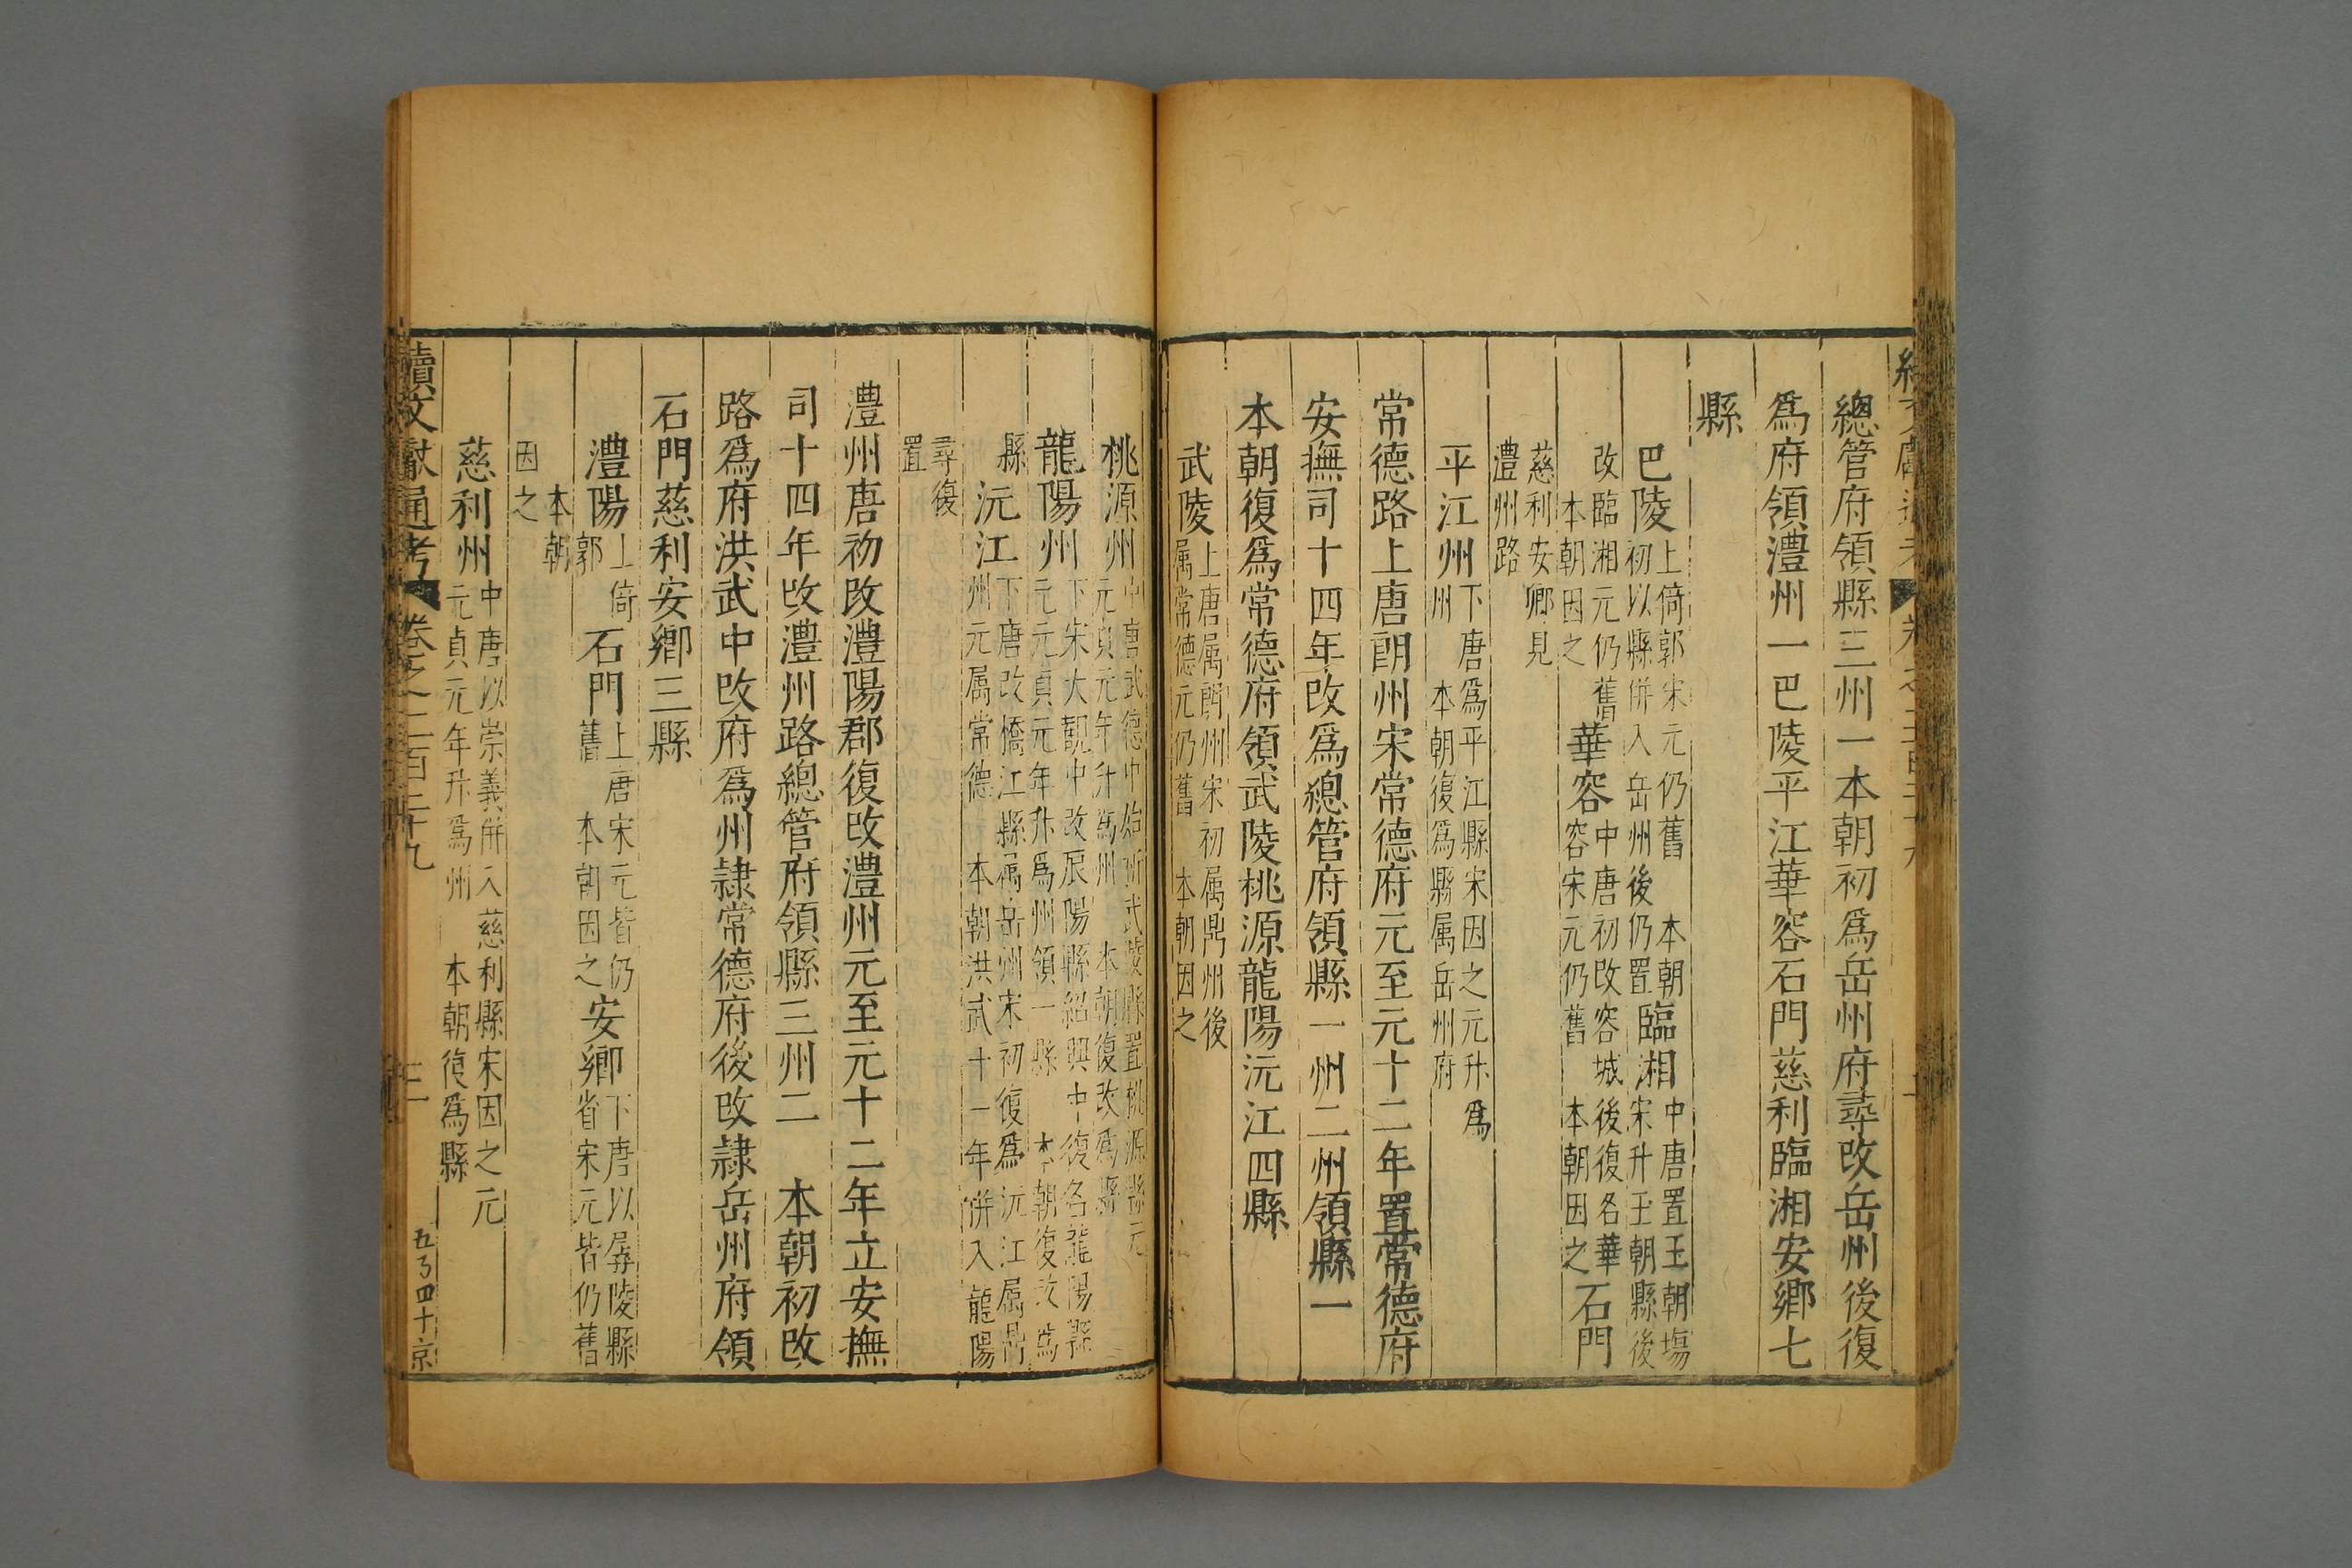 總管府領縣三州一本朝初爲岳州府尋改岳州後復
爲府領澧州一巴陵平江華容石門慈利臨湘安鄉七
縣
巴陵上倚郭宋元仍舊 本朝
初以縣併入岳州後仍置臨湘中唐置王朝塲
宋升王朝縣後
改臨湘元仍舊
本朝因之華容中唐初改容城後復名華
容宋元仍舊 本朝因之石門
慈利安鄉見
澧州路
平江州下唐爲平江縣宋因之元升爲
州 本朝復爲縣属岳州府
常德路上唐朗州宋常德府元至元十二年置常德府
安撫司十四年改爲總管府領縣一州二州領縣一
本朝復爲常德府領武陵桃源龍陽沅江四縣
武陵上唐属朗州宋初属鼎州後
属常德元仍舊 本朝因之
桃源州中唐武德中始析武陵縣置桃源縣元
元貞元年升爲州 本朝復改爲縣
龍陽州下宋大觀中改辰陽縣紹興中復名龍陽縣
元元貞元年升爲州領一縣 本朝復改爲
縣沅江下唐改橋江縣属岳州宋初復爲沅江属鼎
州元属常德 本朝洪武十一年併入龍陽
尋復
置
澧州唐初改澧陽郡復改澧州元至元十二年立安撫
司十四年改澧州路總管府領縣三州二 本朝初改
路爲府洪武中改府爲州隷常德府後改隷岳州府領
石門慈利安鄉三縣
澧陽上倚
郭石門上唐宋元皆仍
舊 本朝因之安鄉下唐以孱陵縣
省宋元皆仍舊
本朝
因之
慈利州中唐以崇義併入慈利縣宋因之元
元貞元年升爲州 本朝復爲縣
續文獻通考 卷之二百二十九 三 五ろ四十京